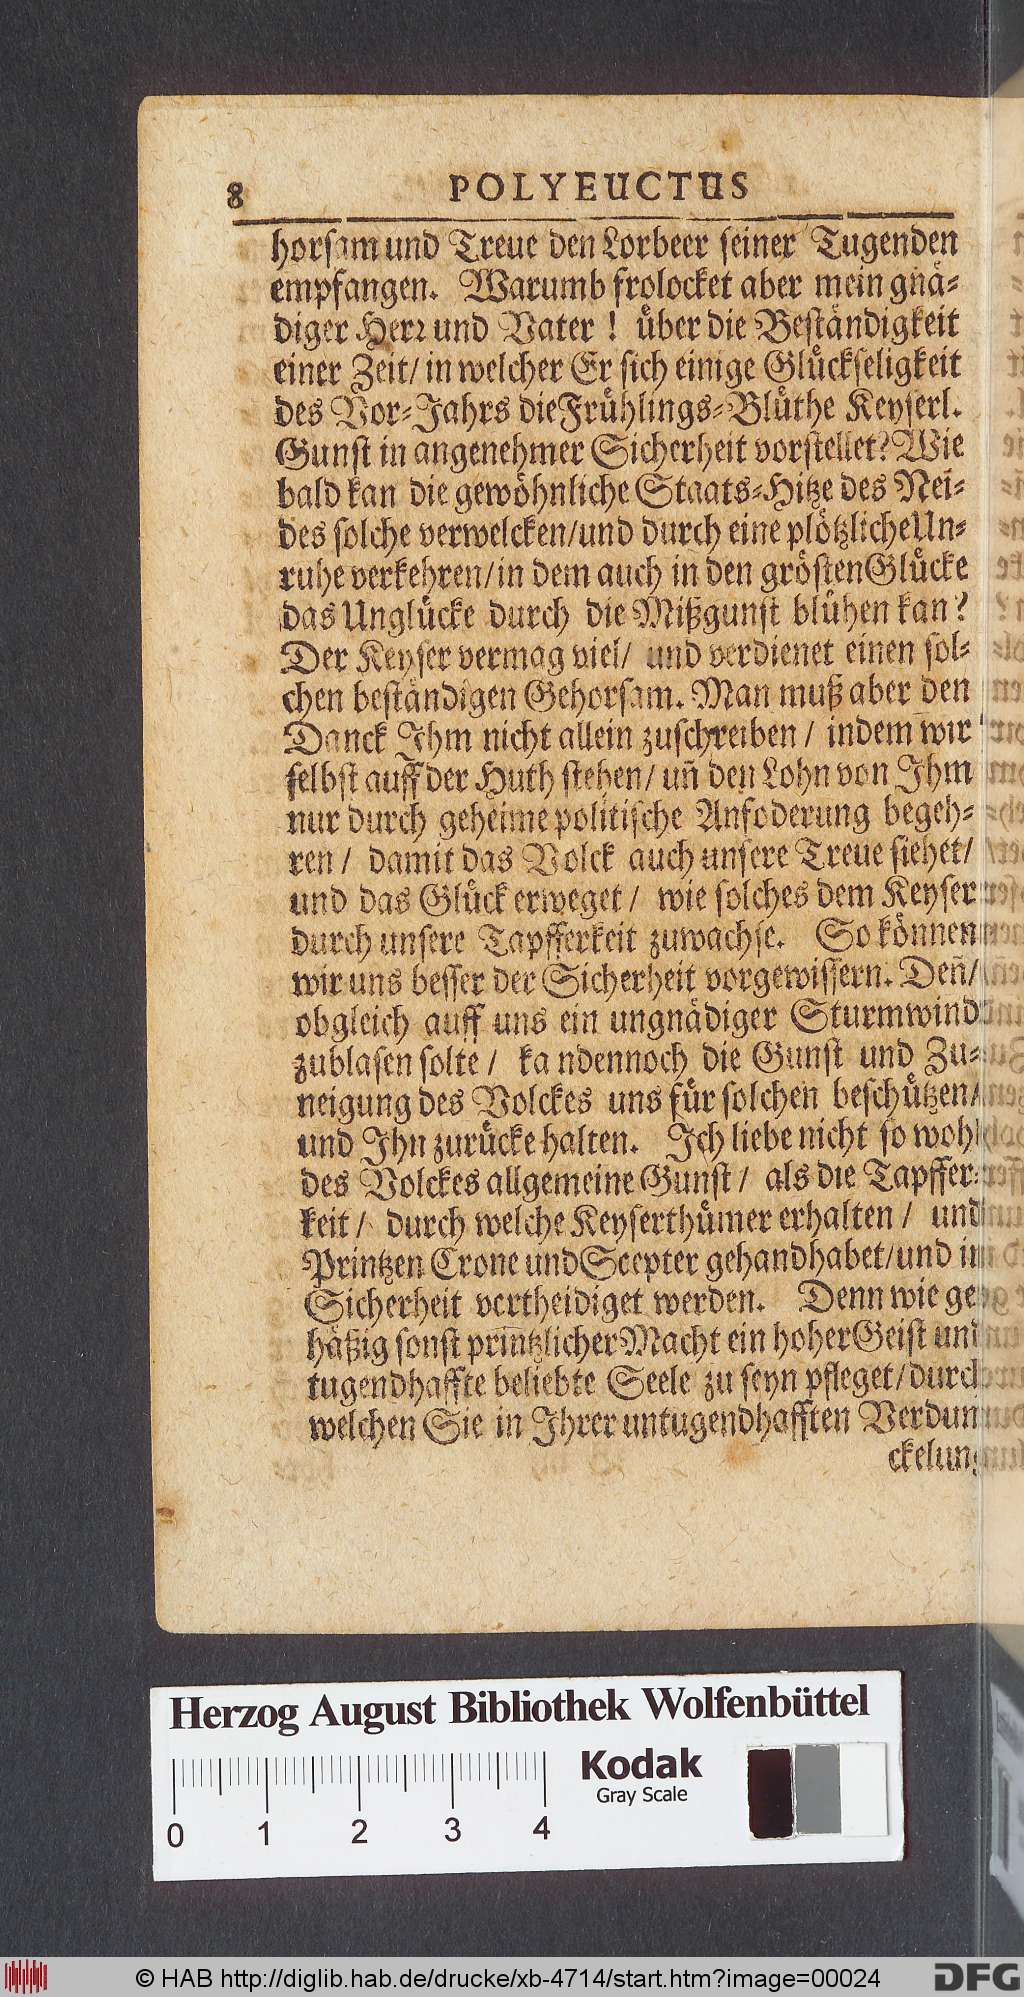 8 POLYEUCTUS
horsam und Treue den Lorbeer seiner Tugenden
empfangen. Warumb frolocket aber mein gnä-
diger Herr und Vater! über die Beständigkeit
einer Zeit/ in welcher Er sich einige Glückseligkeit
des Vor-Jahrs die Frühlings-Blüthe Keyserl.
Gunst in angenehmer Sicherheit vorstellet? Wie
bald kan die gewöhnliche Staats-Hitze des Nei-
des solche verwelcken/ und durch eine plötzliche Un-
ruhe verkehren/ in dem auch in den grösten Glücke
das Unglücke durch die Mißgunst blühen kan?
Der Keyser vermag viel/ und verdienet einen sol-
chen beständigen Gehorsam. Man muß aber den
Danck Ihm nicht allein zuschreiben/ indem wir
selbst auff der Huth stehen/ uñ den Lohn von Ihm
nur durch geheime politische Anfoderung begeh-
ren/ damit das Volck auch unsere Treue siehet/
und das Glück erweget/ wie solches dem Keyser
durch unsere Tapfferkeit zuwachse. So können
wir uns besser der Sicherheit vorgewissern. Deñ/
obgleich auff uns ein ungnädiger Sturmwind
zublasen solte/ ka ndennoch die Gunst und Zu-
neigung des Volckes uns für solchen beschützen/
und Ihn zurücke halten. Ich liebe nicht so wohl
des Volckes allgemeine Gunst/ als die Tapffer-
keit/ durch welche Keyserthümer erhalten/ und
Printzen Crone und Scepter gehandhabet/ und in
Sicherheit vertheidiget werden. Denn wie ge-
häßig sonst printzlicher Macht ein hoher Geist und
tugendhaffte beliebte Seele zu seyn pfleget/ durch
welchen Sie in Ihrer untugendhafften Verdun
ckelung
Herzog August Bibliothek Wolfenbüttel
0 1 2 3 4
Kodak
Gray Scale
© HAB http://diglib.hab.de/drucke/xb-4714/start.htm?image=00024
DFG